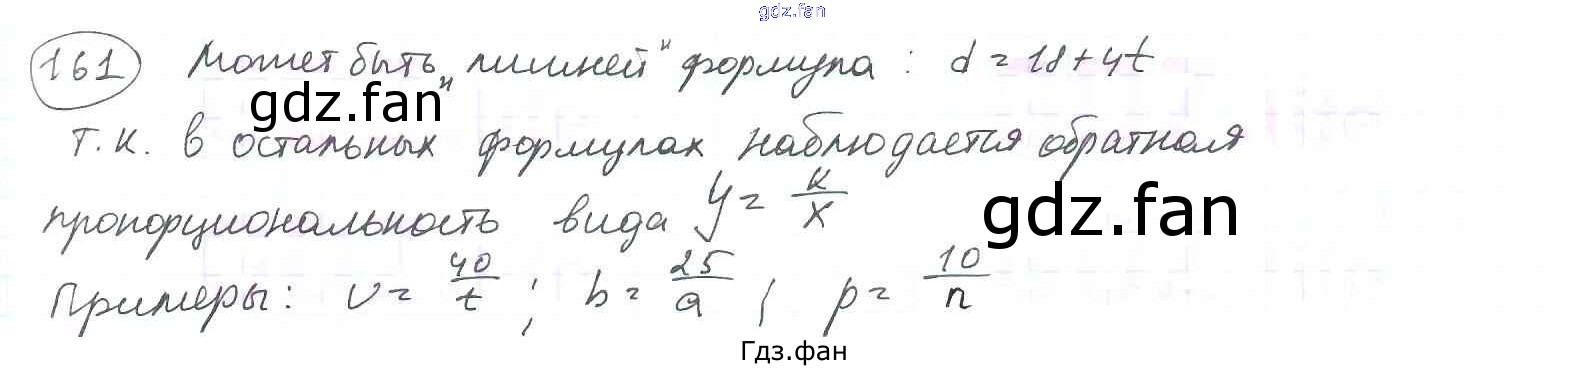 gdz.fan
161 Может быть „лишней" формула : d = 18 + 4t
gdz.fan
т.к. в остальных формулах наблюдается обратная
пропорциональность вида y = k/x
gdz.fan
Примеры: v = 40/t ; b = 25/a ; p = 10/n
Гдз.фан